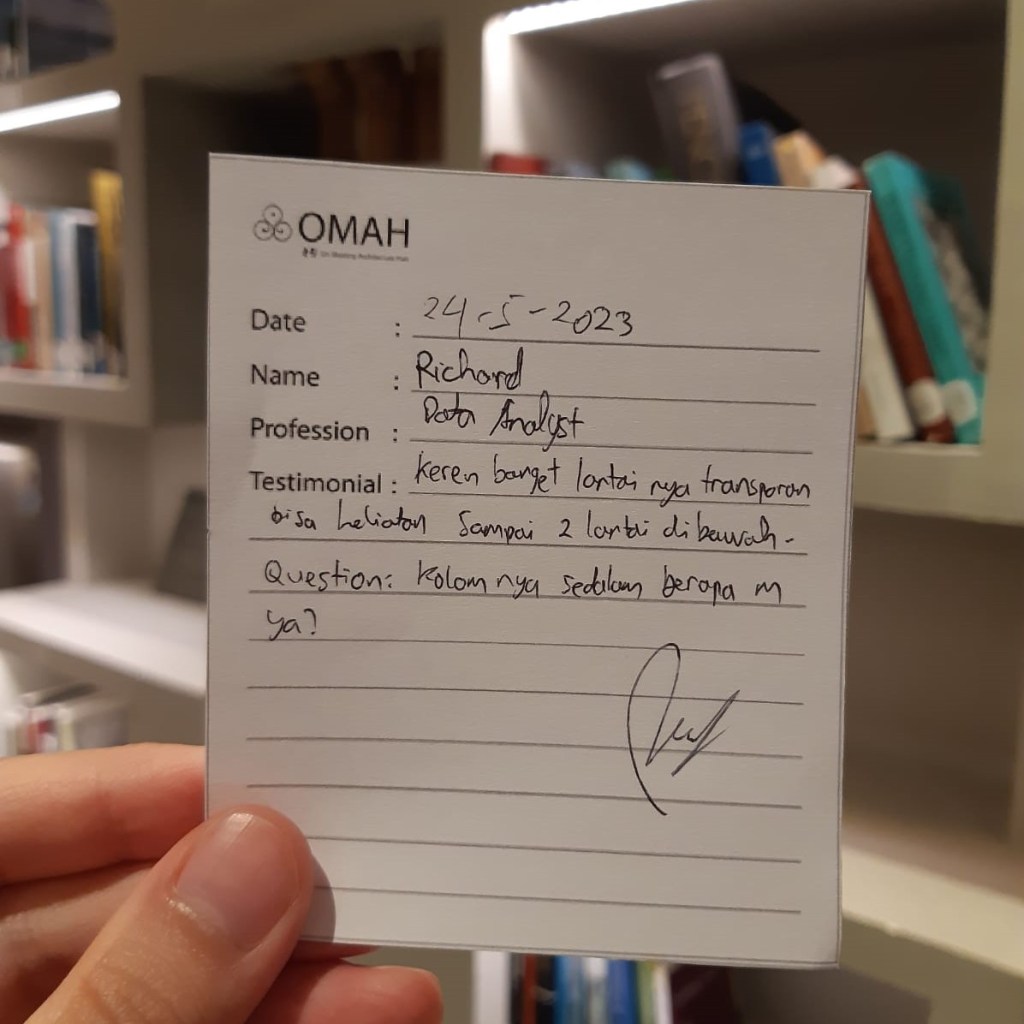 OMAH
Date : 24-5-2023
Name : Richard
Profession : Data Analyst
Testimonial : Keren banget lantai nya transparan
bisa keliatan sampai 2 lantai di bawah.
Question: Kolom nya sedalam berapa m
ya?